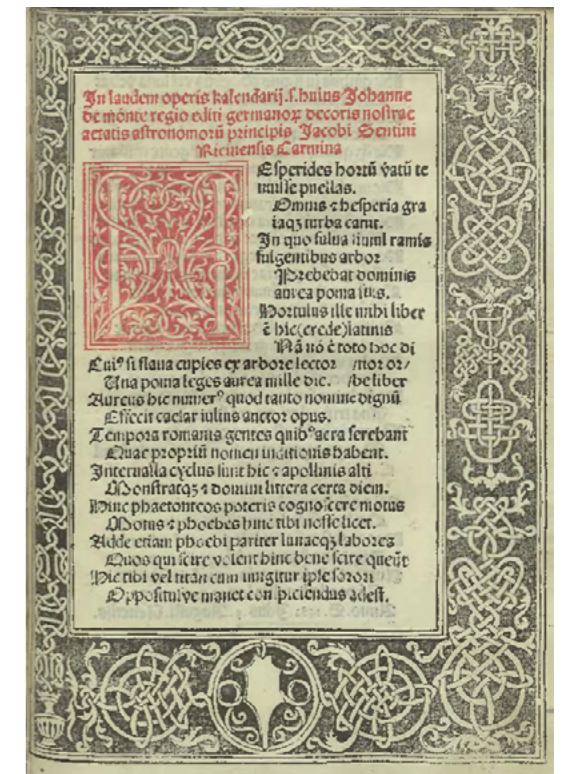 In laudem operis kalendarij .s. huius Johanne
de monte regio editi germanoꝝ decoris nostrae
aetatis astronomorū principis Jacobi Sentini
Ricinensis Carmina
HEsperides hortū vatū te
nuisse puellas.
Omnis ⁊ hesperia gra
iaqꝫ turba canit.
In quo fulua ramis
fulgentibus arbor
Prebebat dominis
aurea poma suis.
Hortulus ille mihi liber
ē hic(crede)latinis
Nā nō ē toto hoc di
Cuiꝰ si flaua cupies ex arbore lector /tior or/
Una poma leges aurea mille die. /be liber
Aureus hic numerꝰ quod tanto nomine dignū
Effecit caesar iulius auctor opus.
Tempora romanis gentes quibꝰ aera ferebant
Quae propriū nomen inditionis habent.
Interualla cyclus sunt hic ⁊ apollinis alti
Monstratqꝫ ⁊ domini littera certa diem.
Hinc phaetonteos poteris cognoscere motus
Motus ⁊ phoebes hinc tibi nosse licet.
Adde etiam phoebi pariter lunaeqꝫ labores
Quos qui scire volent hinc bene scire queūt
Hic tibi vel titan cum iungitur ipse sorori
Oppositusve manet conspiciendus adest.